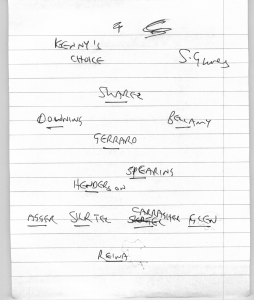 4
KENNY'S
CHOICE
SUAREZ
DOWNING BELLAMY
GERRARD
SPEARING
HENDERSON
AGGER SKRTEL CARRAGHER GLEN
REINA